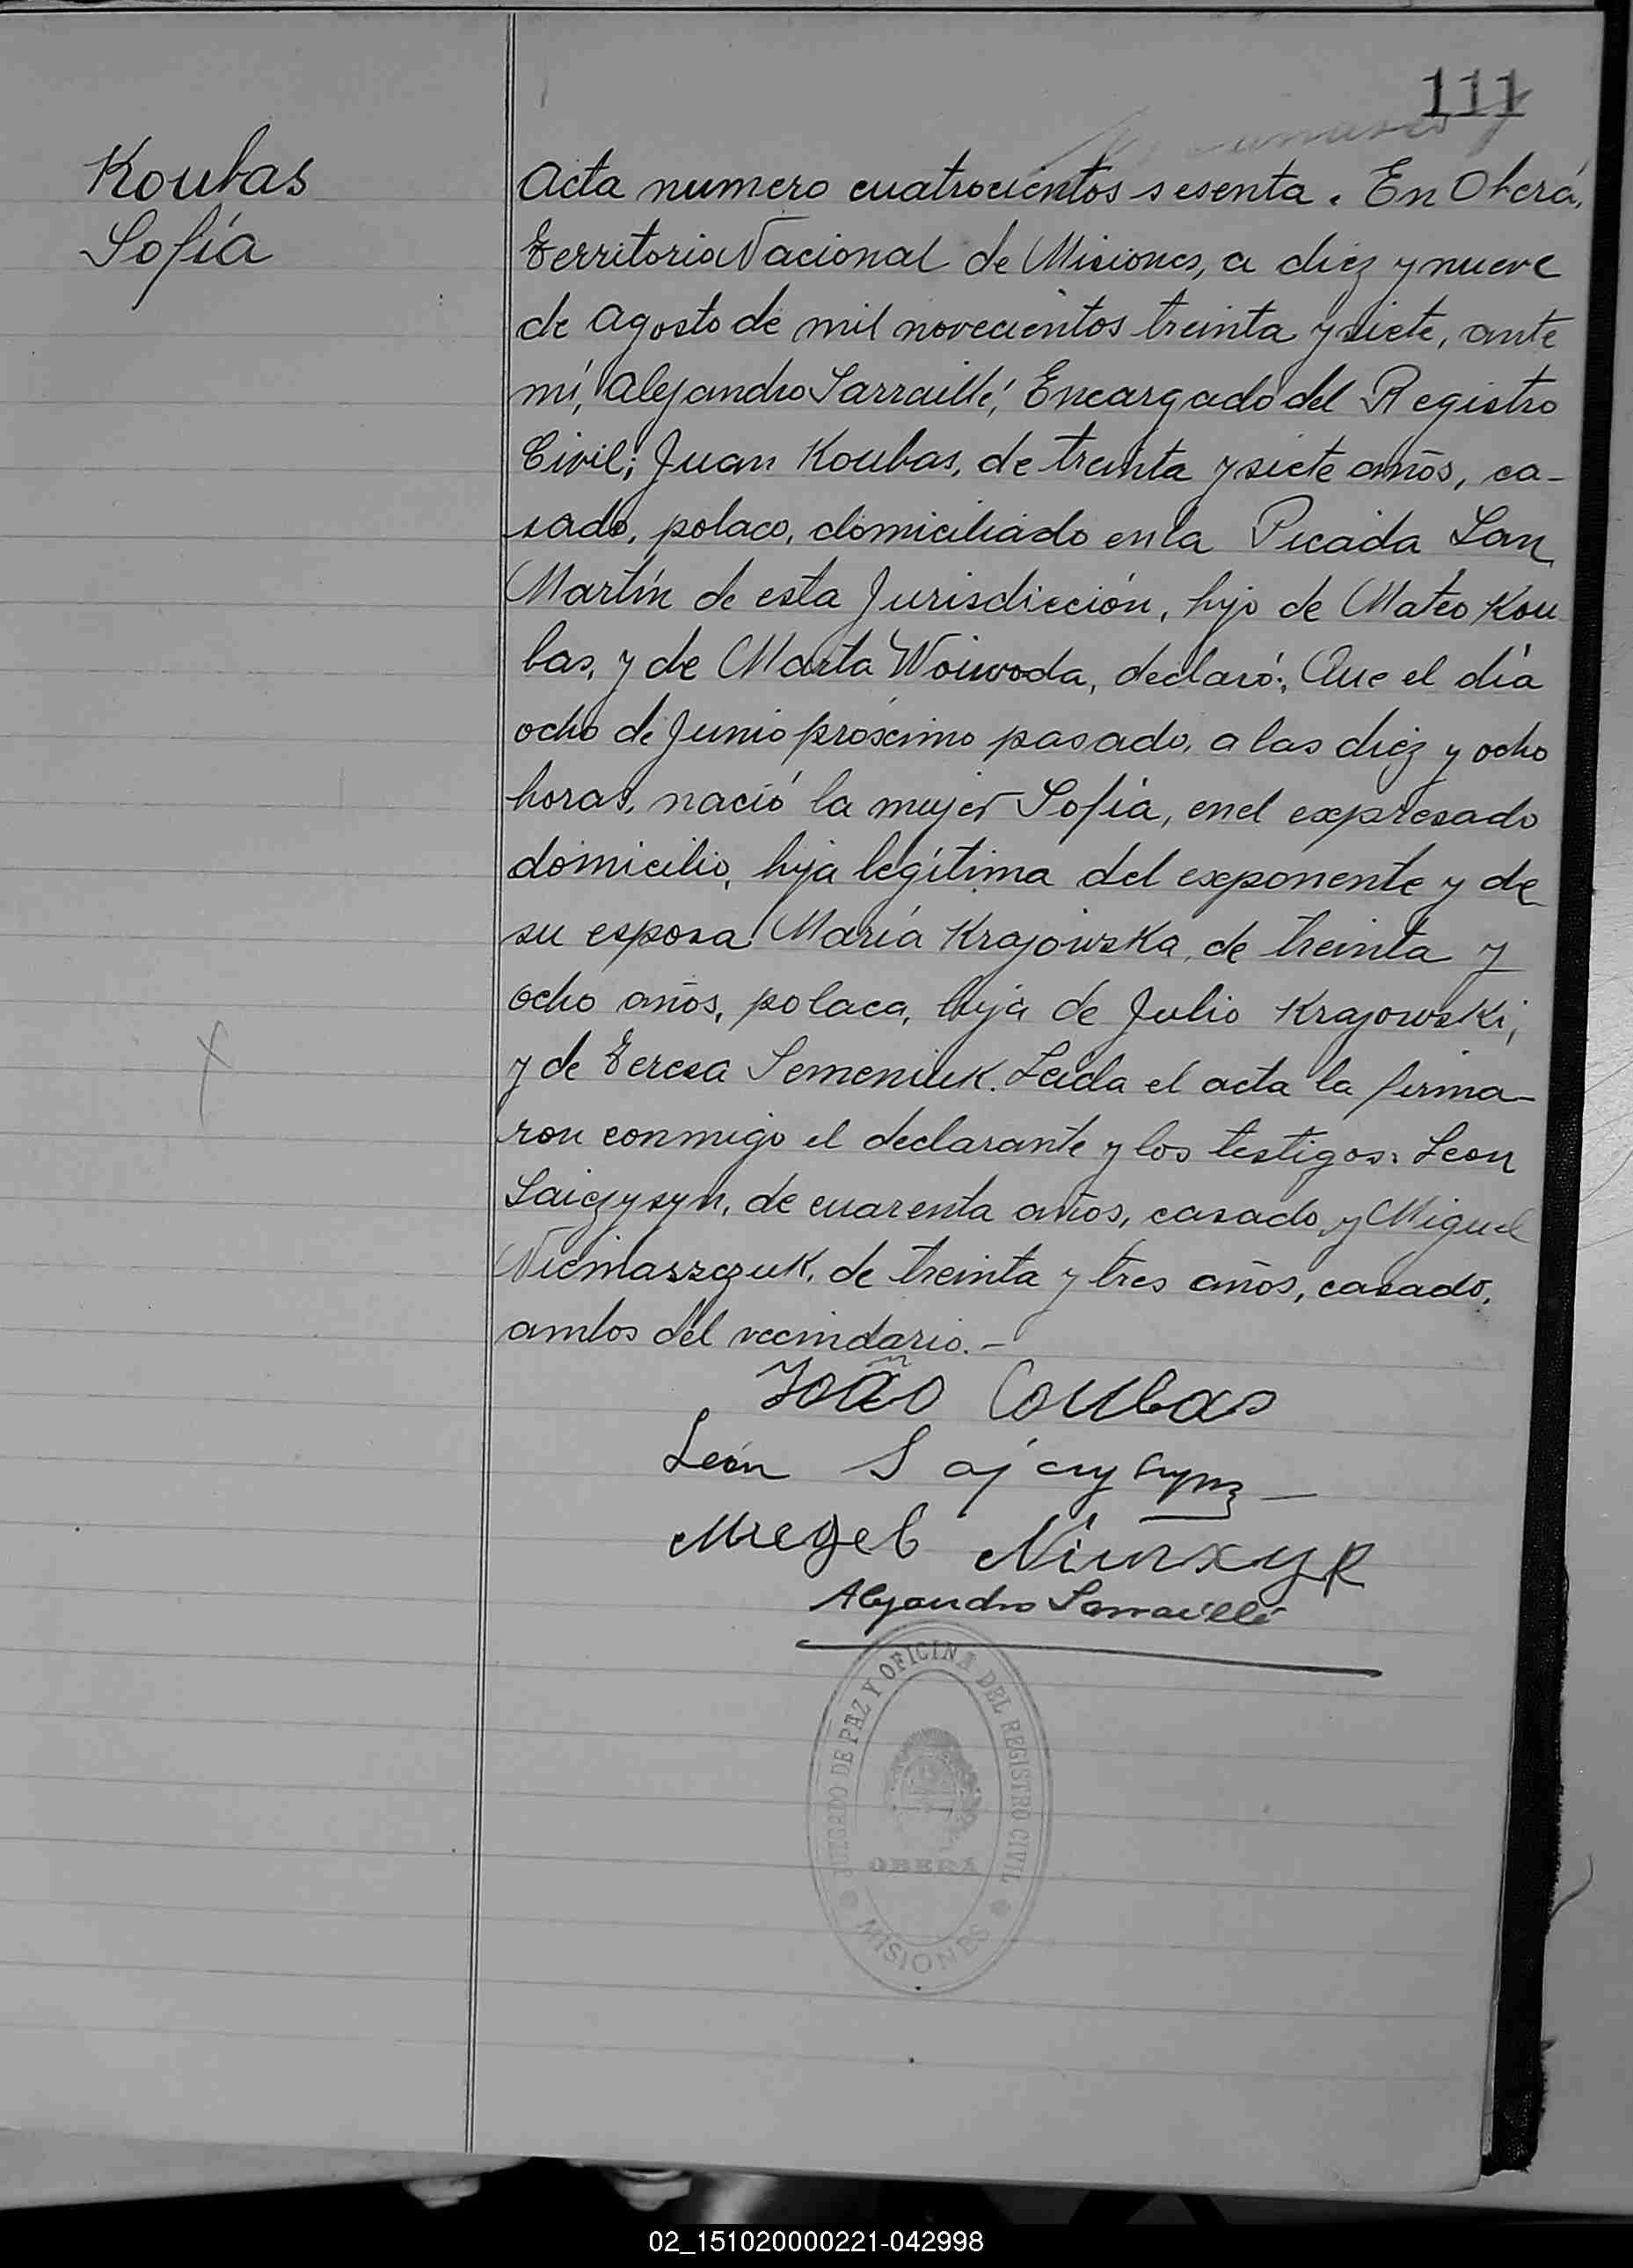 111
Koubas
Sofía
Acta numero cuatrocientos sesenta. En Oberá,
Territorio Nacional de Misiones, a diez y nueve
de Agosto de mil novecientos treinta y siete, ante
mí, Alejandro Sarraillé, Encargado del Registro
Civil; Juan Koubas, de treinta y siete años, ca-
sado, polaco, domiciliado en la Picada San
Martín de esta Jurisdicción, hijo de Mateo Kou
bas, y de Marta Woiwoda, declaró: Que el día
ocho de Junio próximo pasado, a las diez y ocho
horas, nació la mujer Sofía, en el expresado
domicilio, hija legítima del exponente y de
su esposa María Krajowska, de treinta y
ocho años, polaca, hija de Julio Krajowski,
y de Teresa Semeniuk. Leída el acta la firma-
ron conmigo el declarante y los testigos: Leon
Saiczysyn, de cuarenta años, casado y Miguel
Niemaszczuk, de treinta y tres años, casado,
ambos del vecindario.-
João Coubas
León
Alejandro Sarraillé
JUZGADO DE PAZ Y OFICINA DEL REGISTRO CIVIL
OBERÁ
MISIONES
02_151020000221-042998